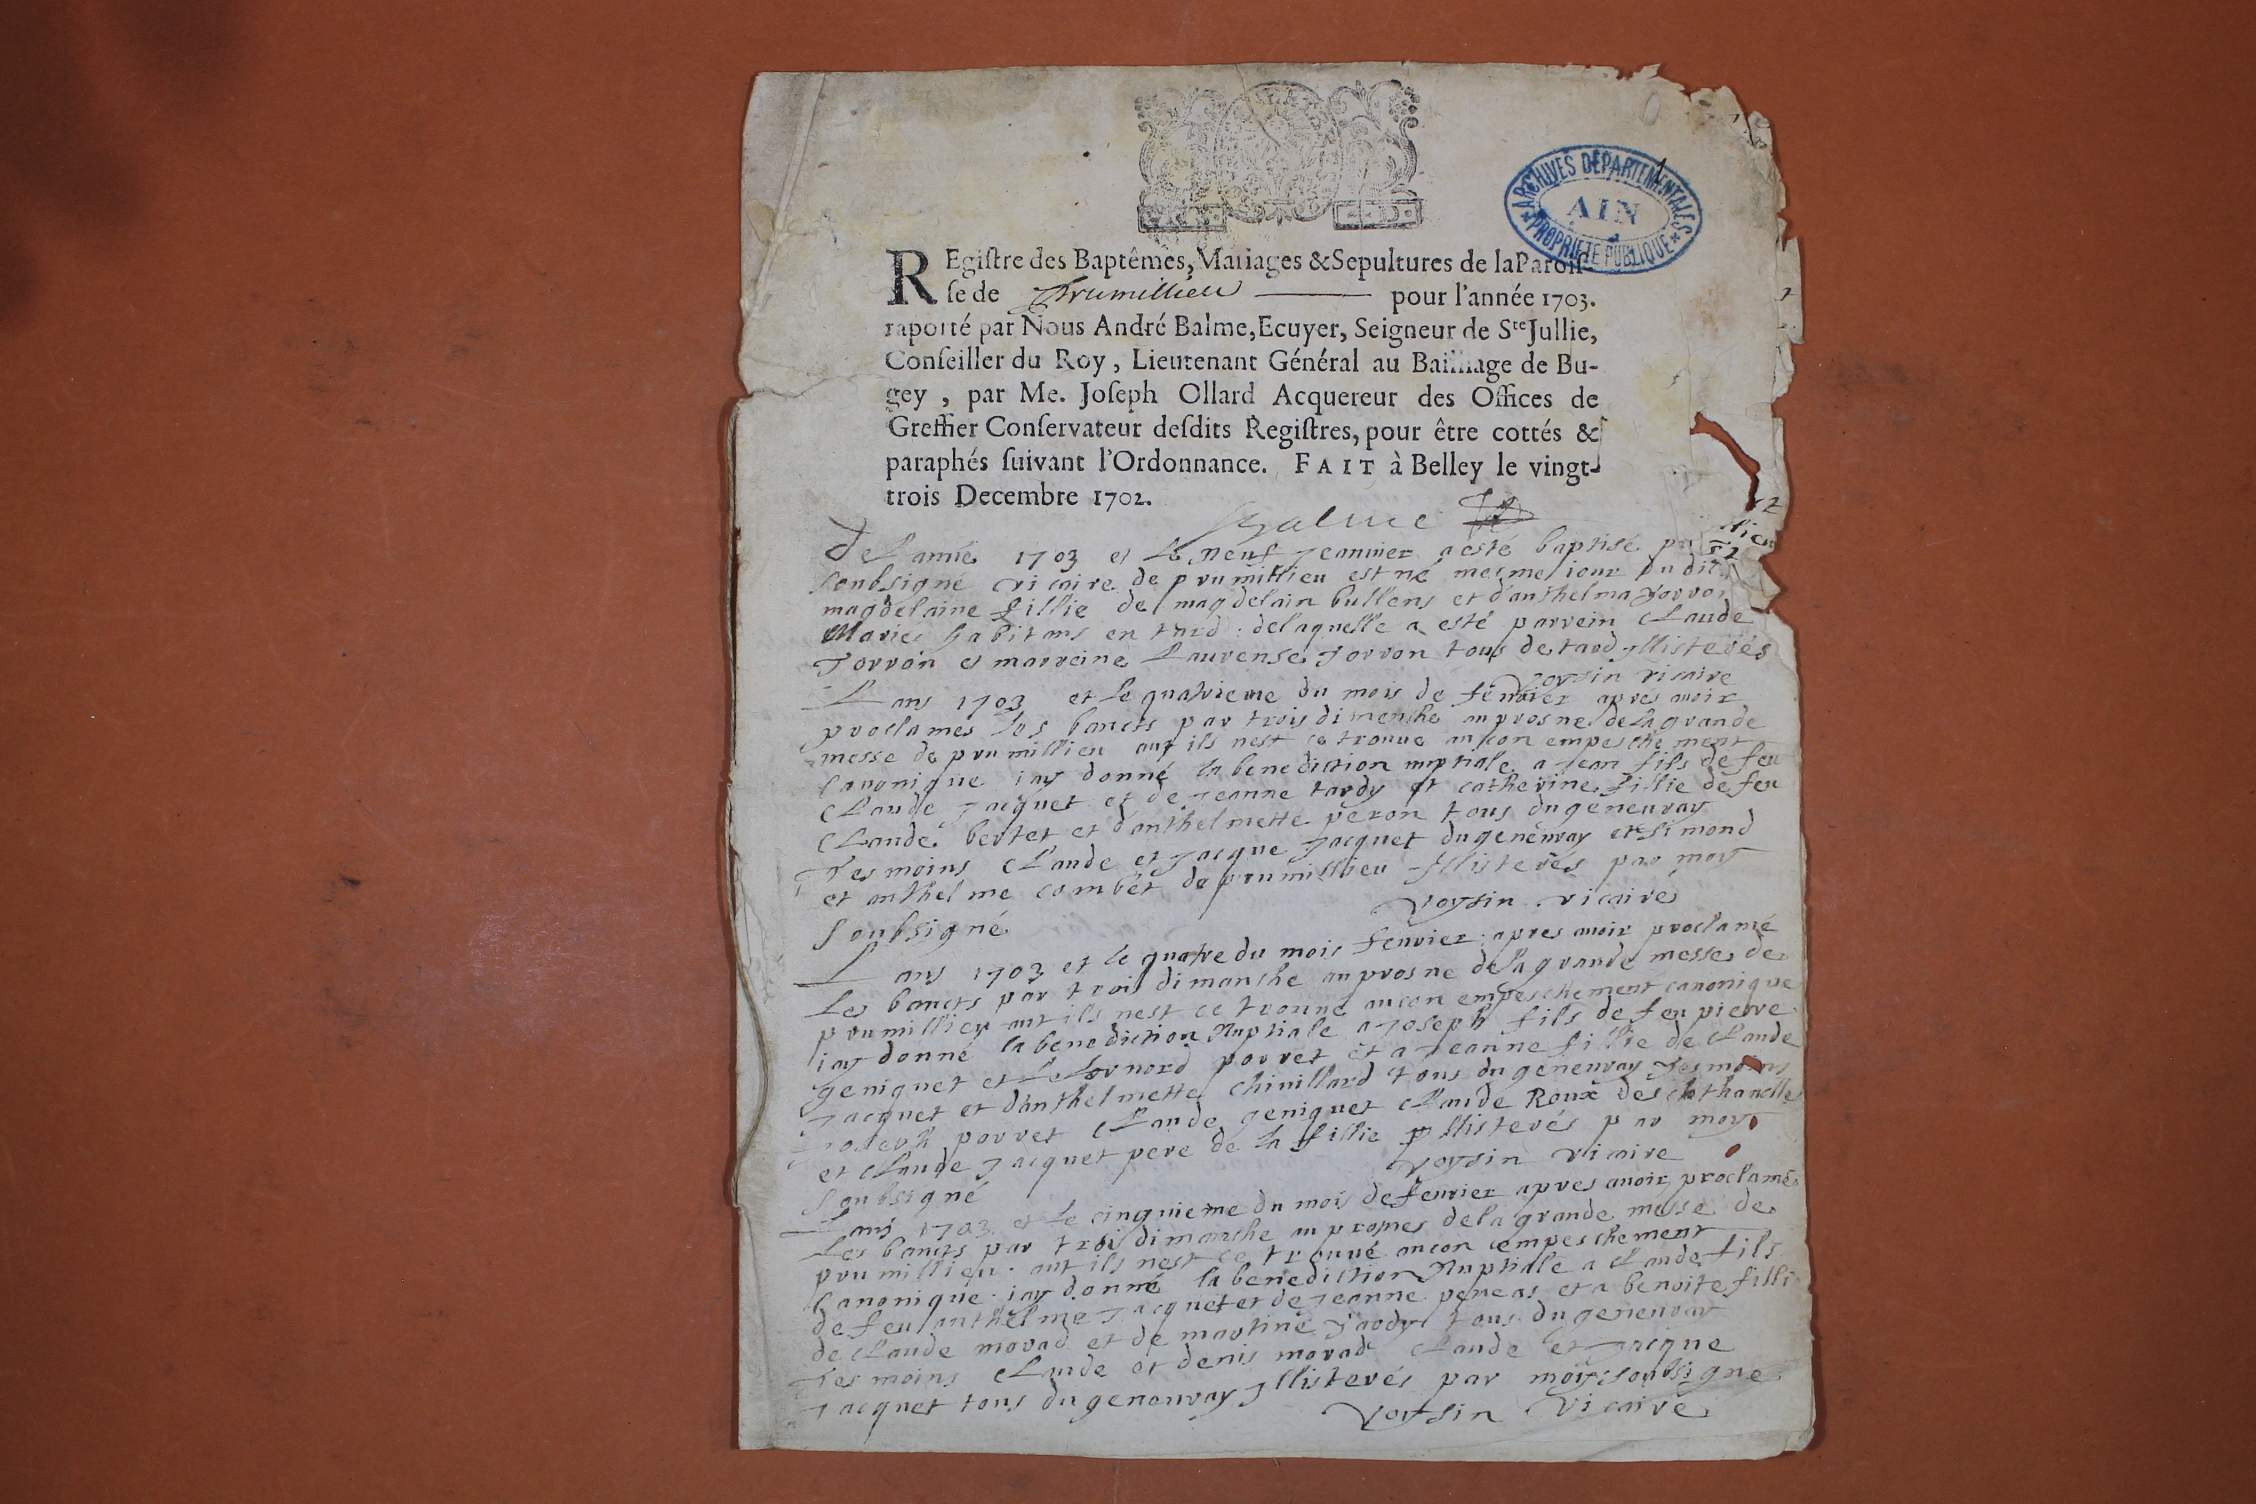 1
ARCHIVES DÉPARTEMENTALES
AIN
PROPRIÉTÉ PUBLIQUE
REgiſtre des Baptêmes, Mariages & Sepultures de la Paroiſ-
ſe de Prumillieu pour l'année 1703.
raporté par Nous André Balme, Ecuyer, Seigneur de Ste Jullie,
Conſeiller du Roy, Lieutenant Général au Bailliage de Bu-
gey, par Me. Joſeph Ollard Acquereur des Offices de
Greffier Conſervateur deſdits Regiſtres, pour être cottés &
paraphés ſuivant l'Ordonnance. FAIT à Belley le vingt-
trois Decembre 1702.
Balme
de l'année 1703 et le neuf jeanvier a esté baptisé
soubsigné vicaire de prumillieu est né mesme jour du dit
magdelaine fillie de magdelain bullens et d'anthelma
Maries habitans en tard de laquelle a esté parrein Claude
Jorron et marreine Laurense Jorron tous de tard Illisterés
voysin vicaire
L ans 1703 et le quatrieme du mois de fevrier apres avoir
proclames les bancts par trois dimenche au prosne de la grande
messe de prumillieu ils nest ce trouve aucon empeschement
canonique jay donné la benediction nuptiale a Jean fils de feu
Claude Jacquet et de Jeanne tardy et catherine fillie de feu
Claude bertet et d'anthelmette peron tous du geneuray
Tesmoins Claude et Jacque Jacquet du geneuray et simond
et anthelme combet de prumillieu Illisterés par moy
soubsigné voysin vicaire
L ans 1703 et le quatre du mois fevrier apres avoir proclamé
Les bancts par trois dimanche au prosne de la grande messe de
prumillieu aut ils nest ce trouve aucon empeschement canonique
jay donné la benediction Nuptiale a Joseph fils de feu pierre
geniquet et porret et a Jeanne fillie de Claude
Jacquet et d'anthelmette chivillard tous du geneuray Tesmoins
Joseph porret Claude geniquet Claude Roux
et Claude Jacquet pere de la fillie Illisterés par moy
soubsigné voysin vicaire
L ans 1703 et le cinquieme du mois de fevrier apres avoir proclamé
Les bancts par trois dimanche au prosnes de la grande messe de
prumillieu aut ils nest ce trouvé aucon empeschement
canonique jay donné la benediction Nuptiale a Claude fils
de feu anthelme Jacquet et de Jeanne peneas et a benoite filli
de Claude morad et de martine tous du geneuray
Tesmoins Claude et denis morad Claude et Jacque
Jacquet tous du geneuray Illisterés par moy soubsigné
voysin vicaire